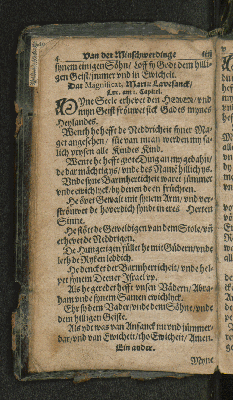 4 Van der Minschwerdinge
synem einigen Söhne / Loff sy Gode dem hilli-
gen Geist / jmmer vnd in Ewicheit.
Dat Magnificat, Marien Lavesanck /
Luc. am 1. Capitel.
MYne Seele erhevet den HEREN / vnd
myn Geist fröuwet sick Gades mynes
Heylandes.
Wente he hefft de Neddricheit syner Ma-
get angesehen / süe van nu an werden my sa-
lich prysen alle Kindes Kind.
Wente he hefft grote Ding an my gedahn /
de dar mächtig ys / vnd des Name hillich ys.
Vnde syne Barmherticheit waret jümmer
vnde ewichlyck / by denen de en früchten.
He övet Gewalt mit synem Arm / vnd ver-
ströuwet de hoverdich synde in eres Herten
Sinne.
He stött de Geweldigen van dem Stole / vnd
erhevet de Neddrigen.
De Hungerigen füllet he mit Güdern / vnde
leth de Ryken leddich.
He dencket der Barmherticheit / vnde hel-
pet synem Deener Israel vp.
Als he geredet hefft vnsen Vädern / Abra-
ham vnde synem Samen ewichlyck.
Ehr sy dem Vader / vnde dem Söhne / vnde
dem hilligen Geiste.
Als ydt was van Anfanck nu vnd jümmer-
dar / vnd van Ewicheit / tho Ewicheit / Amen.
Ein ander.
Myne